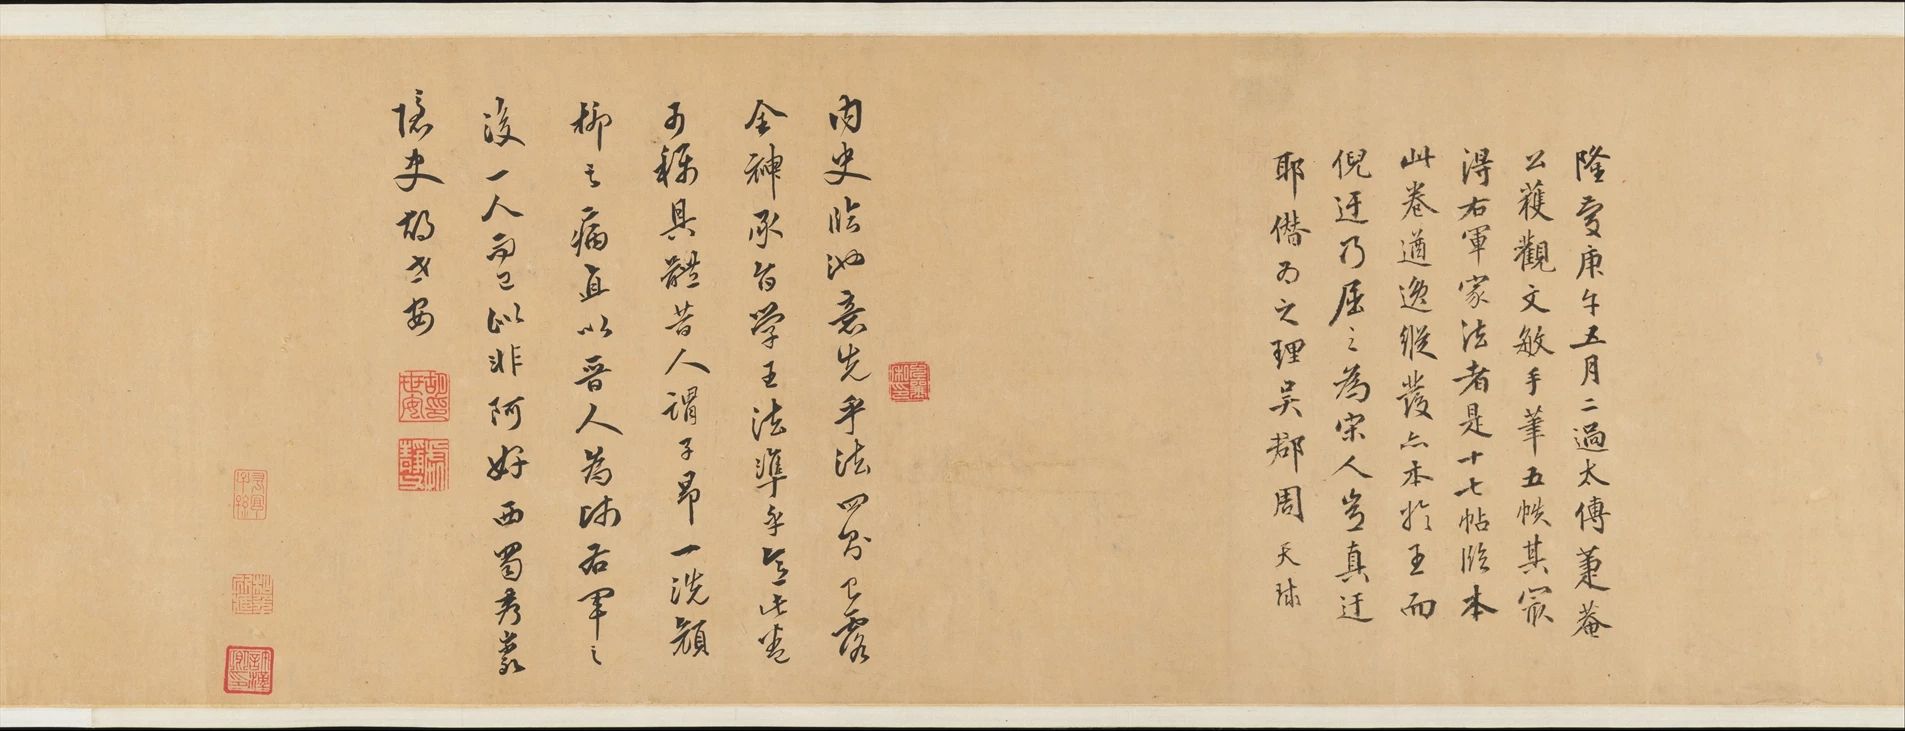 隆慶庚午五月二過太傅蒹菴
公獲觀文敏手筆五帙其最
得右軍家法者是十七帖臨本
此卷遒逸縱發亦本於王而
倪迂乃屈之為宋人豈真迂
耶僭為之理吳郡周天球
內史臨池意先乎法四器已露
全神承旨學王法準乎意此卷
可稱具體昔人謂子昂一洗顏
柳之病直以晉人為師右軍之
後一人而已似非阿好西蜀
隱史胡世安
胡世安印